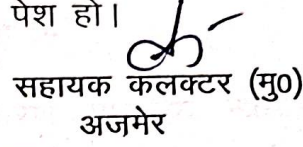 पेश हो।
सहायक कलक्टर (मु0)
अजमेर